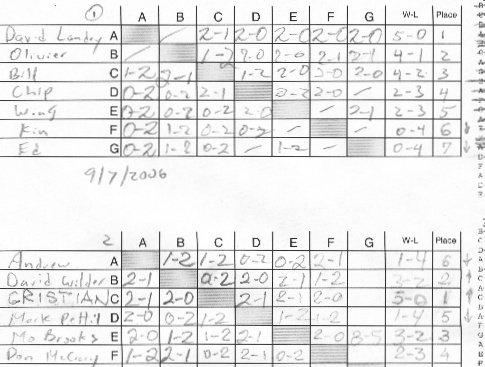 1 A B C D E F G W-L Place
David Landry A / 2-1 2-0 2-0 2-0 2-0 5-0 1
Olivier B / 1-2 2-0 2-0 2-1 2-1 4-1 2
Bill C 1-2 2-1 1-2 2-0 2-0 2-0 4-2 3
Chip D 0-2 0-2 2-1 0-2 2-0 / 2-3 4
Wing E 0-2 0-2 0-2 2-0 / 2-1 2-3 5
Kin F 0-2 1-2 0-2 0-2 / / 0-4 6
Ed G 0-2 1-2 0-2 / 1-2 / 0-4 7
9/7/2006
2 A B C D E F G W-L Place
Andrew A 1-2 1-2 0-2 0-2 2-1 1-4 6
David Wilder B 2-1 0-2 2-0 2-1 1-2 2
CRISTIAN C 2-1 2-0 2-1 2-1 2-0 5-0 1
Mark Pettil D 2-0 0-2 1-2 1-2 1-2 1-4 5
Mo Brooks E 2-0 1-2 1-2 2-1 2-0 3-2 3
Don McCrary F 1-2 2-1 0-2 2-1 0-2 2-3 4